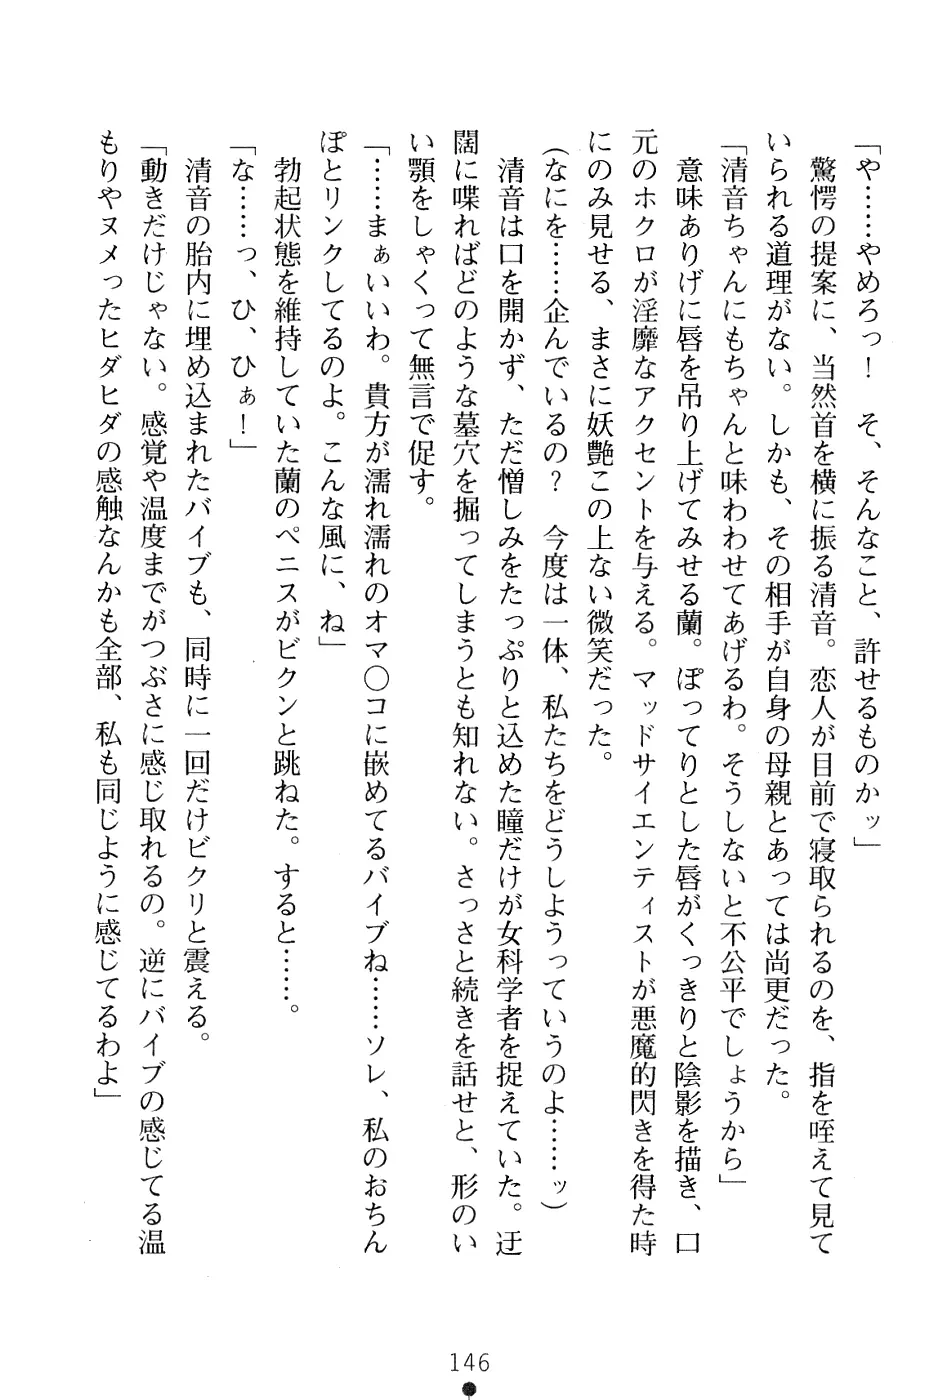 「や……やめろっ！　そ、そんなこと、許せるものかッ」
　驚愕の提案に、当然首を横に振る清音。恋人が目前で寝取られるのを、指を咥えて見て
いられる道理がない。しかも、その相手が自身の母親とあっては尚更だった。
「清音ちゃんにもちゃんと味わわせてあげるわ。そうしないと不公平でしょうから」
　意味ありげに唇を吊り上げてみせる蘭。ぽってりとした唇がくっきりと陰影を描き、口
元のホクロが淫靡なアクセントを与える。マッドサイエンティストが悪魔的閃きを得た時
にのみ見せる、まさに妖艶この上ない微笑だった。
（なにを……企んでいるの？　今度は一体、私たちをどうしようっていうのよ……ッ）
　清音は口を開かず、ただ憎しみをたっぷりと込めた瞳だけが女科学者を捉えていた。迂
闊に喋ればどのような墓穴を掘ってしまうとも知れない。さっさと続きを話せと、形のい
い顎をしゃくって無言で促す。
「……まぁいいわ。貴方が濡れ濡れのオマ〇コに嵌めてるバイブね……ソレ、私のおちん
ぽとリンクしてるのよ。こんな風に、ね」
　勃起状態を維持していた蘭のペニスがビクンと跳ねた。すると……。
「な……っ、ひ、ひぁ！」
　清音の胎内に埋め込まれたバイブも、同時に一回だけビクリと震える。
「動きだけじゃない。感覚や温度までがつぶさに感じ取れるの。逆にバイブの感じてる温
もりやヌメったヒダヒダの感触なんかも全部、私も同じように感じてるわよ」
146